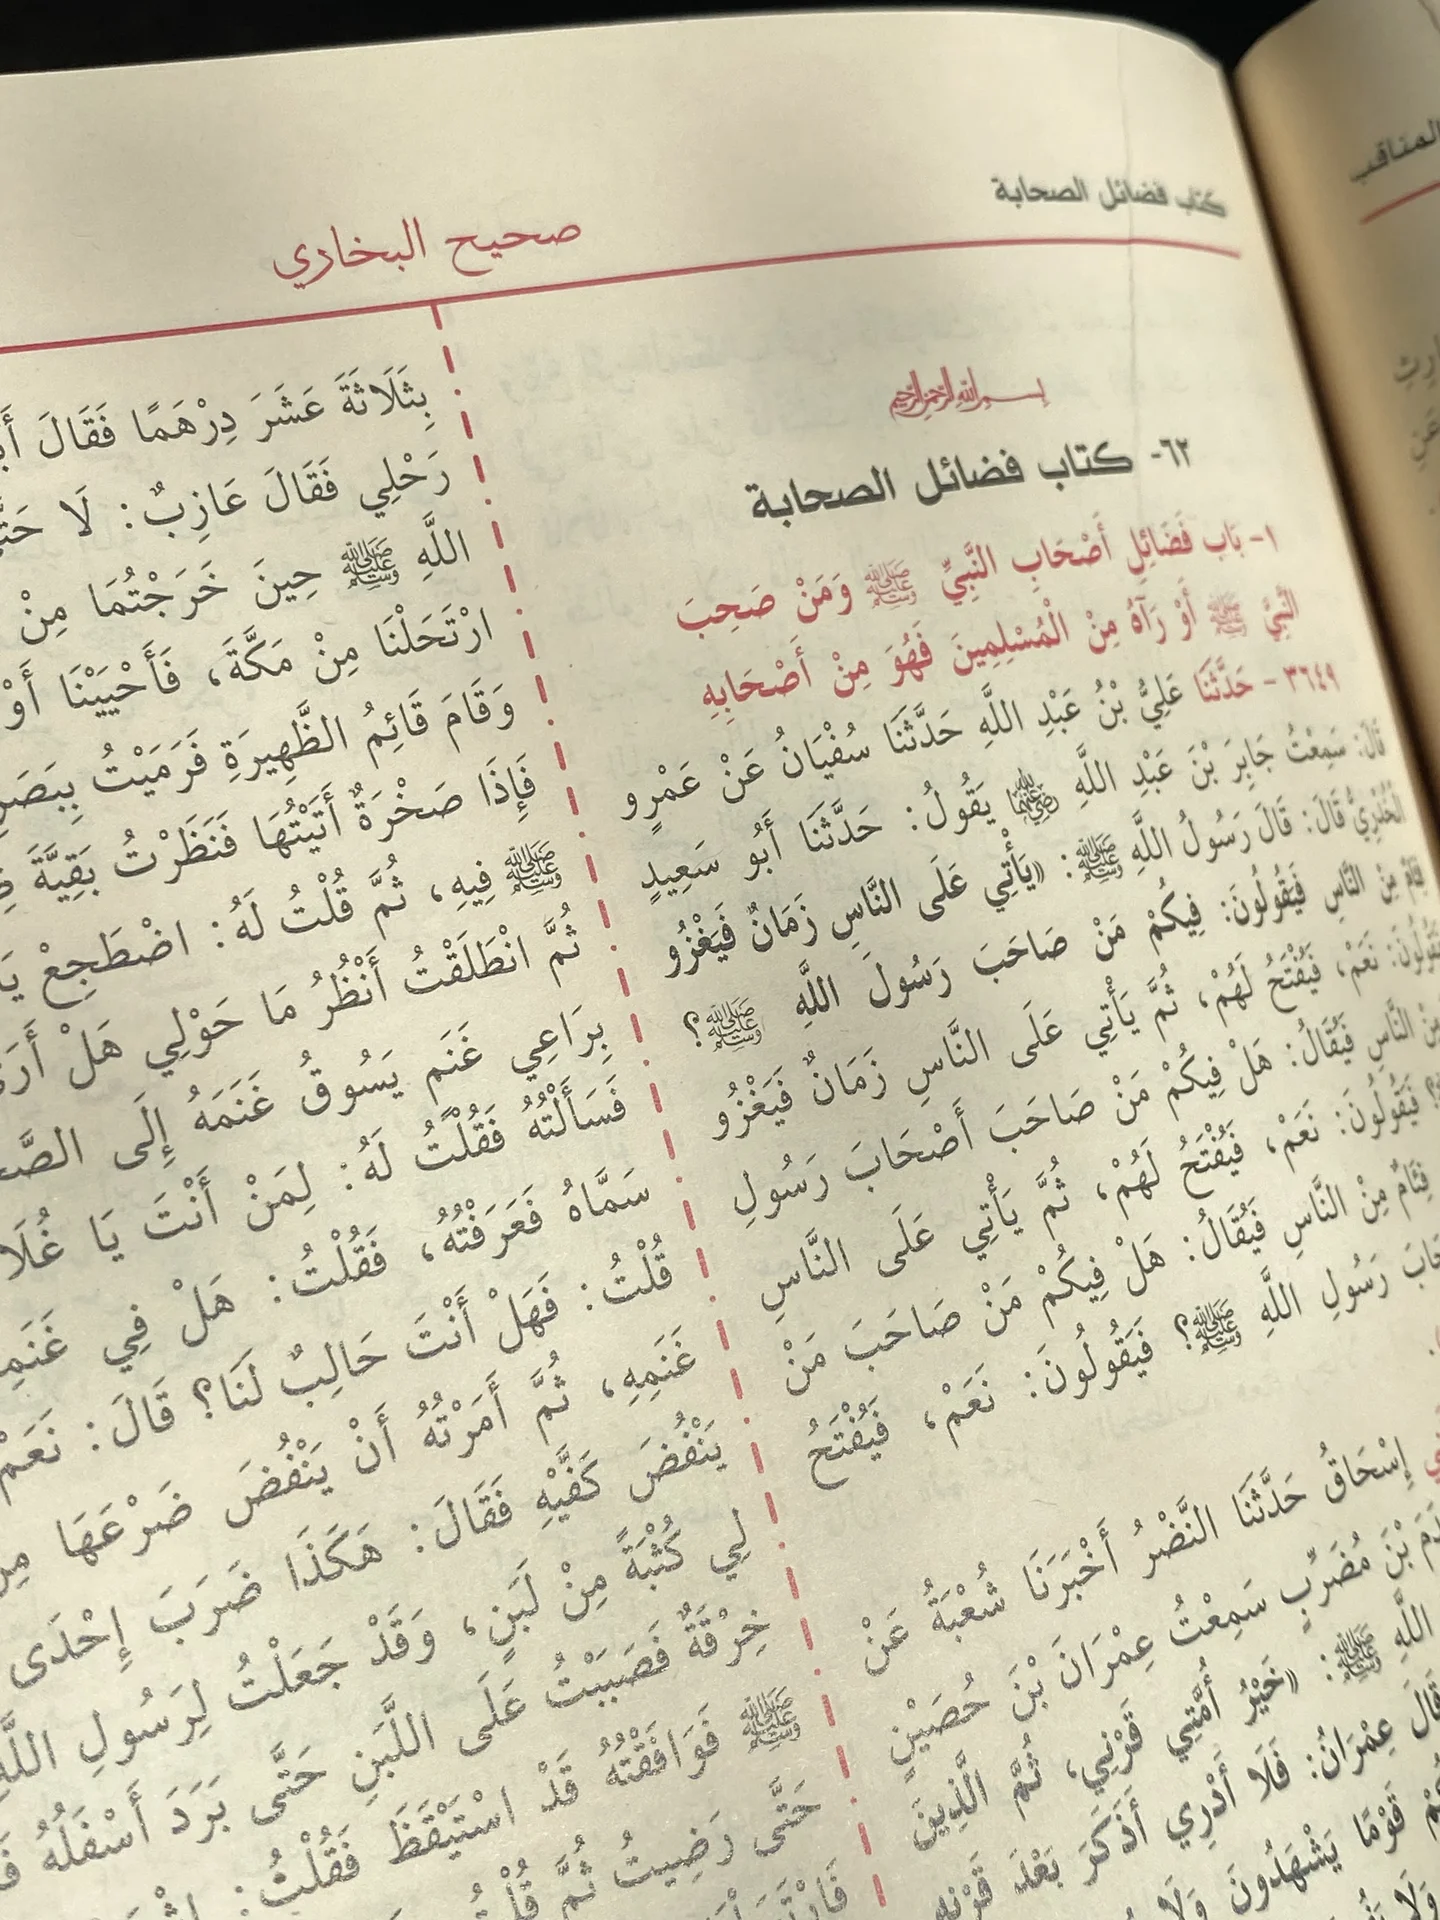 المناقب
كتاب فضائل الصحابة
صحيح البخاري
بسم الله الرحمن الرحيم
٦٢- كتاب فضائل الصحابة
١- بَاب فَضَائِلِ أَصْحَابِ النَّبِيِّ ﷺ وَمَنْ صَحِبَ
النَّبِيَّ ﷺ أَوْ رَآهُ مِنْ الْمُسْلِمِينَ فَهُوَ مِنْ أَصْحَابِهِ
٣٦٤٩ - حَدَّثَنَا عَلِيُّ بْنُ عَبْدِ اللَّهِ حَدَّثَنَا سُفْيَانُ عَنْ عَمْرٍو
قَالَ: سَمِعْتُ جَابِرَ بْنَ عَبْدِ اللَّهِ يَقُولُ: حَدَّثَنَا أَبُو سَعِيدٍ
الْخُدْرِيُّ قَالَ: قَالَ رَسُولُ اللَّهِ ﷺ: «يَأْتِي عَلَى النَّاسِ زَمَانٌ فَيَغْزُو
فِئَامٌ مِنْ النَّاسِ فَيَقُولُونَ: فِيكُمْ مَنْ صَاحَبَ رَسُولَ اللَّهِ ﷺ؟
فَيَقُولُونَ: نَعَمْ، فَيُفْتَحُ لَهُمْ، ثُمَّ يَأْتِي عَلَى النَّاسِ زَمَانٌ فَيَغْزُو
مِنْ النَّاسِ فَيُقَالُ: هَلْ فِيكُمْ مَنْ صَاحَبَ أَصْحَابَ رَسُولِ
فَيَقُولُونَ: نَعَمْ، فَيُفْتَحُ لَهُمْ، ثُمَّ يَأْتِي عَلَى النَّاسِ
فِئَامٌ مِنْ النَّاسِ فَيُقَالُ: هَلْ فِيكُمْ مَنْ صَاحَبَ مَنْ
رَسُولِ اللَّهِ ﷺ؟ فَيَقُولُونَ: نَعَمْ، فَيُفْتَحُ
إِسْحَاقُ حَدَّثَنَا النَّضْرُ أَخْبَرَنَا شُعْبَةُ عَنْ
بْنَ مُضَرِّبٍ سَمِعْتُ عِمْرَانَ بْنَ حُصَيْنٍ
اللَّهِ ﷺ: «خَيْرُ أُمَّتِي قَرْنِي، ثُمَّ الَّذِينَ
قَالَ عِمْرَانُ: فَلَا أَدْرِي أَذَكَرَ بَعْدَ قَرْنِهِ
قَوْمًا يَشْهَدُونَ وَلَا
بِثَلَاثَةَ عَشَرَ دِرْهَمًا فَقَالَ
رَحْلِي فَقَالَ عَازِبٌ: لَا
اللَّهِ ﷺ حِينَ خَرَجْتُمَا مِنْ
ارْتَحَلْنَا مِنْ مَكَّةَ، فَأَحْيَيْنَا أَوْ
وَقَامَ قَائِمُ الظَّهِيرَةِ فَرَمَيْتُ
فَإِذَا صَخْرَةٌ أَتَيْتُهَا فَنَظَرْتُ بَقِيَّةَ
ﷺ فِيهِ، ثُمَّ قُلْتُ لَهُ: اضْطَجِعْ
ثُمَّ انْطَلَقْتُ أَنْظُرُ مَا حَوْلِي هَلْ
بِرَاعِي غَنَم يَسُوقُ غَنَمَهُ إِلَى
فَسَأَلْتُهُ فَقُلْتُ لَهُ: لِمَنْ أَنْتَ يَا
سَمَّاهُ فَعَرَفْتُهُ، فَقُلْتُ: هَلْ فِي
قُلْتُ: فَهَلْ أَنْتَ حَالِبٌ لَنَا؟ قَالَ: نَعَمْ
غَنَمِهِ، ثُمَّ أَمَرْتُهُ أَنْ يَنْفُضَ ضَرْعَهَا
يَنْفُضَ كَفَّيْهِ فَقَالَ: هَكَذَا ضَرَبَ إِحْدَى
لِي كُثْبَةً مِنْ لَبَنٍ، وَقَدْ جَعَلْتُ لِرَسُولِ
خِرْقَةٌ فَصَبَبْتُ عَلَى اللَّبَنِ حَتَّى بَرَدَ أَسْفَلُهُ
ﷺ فَوَافَقْتُهُ قَدْ اسْتَيْقَظَ فَقُلْتُ:
حَتَّى رَضِيتُ ثُمَّ